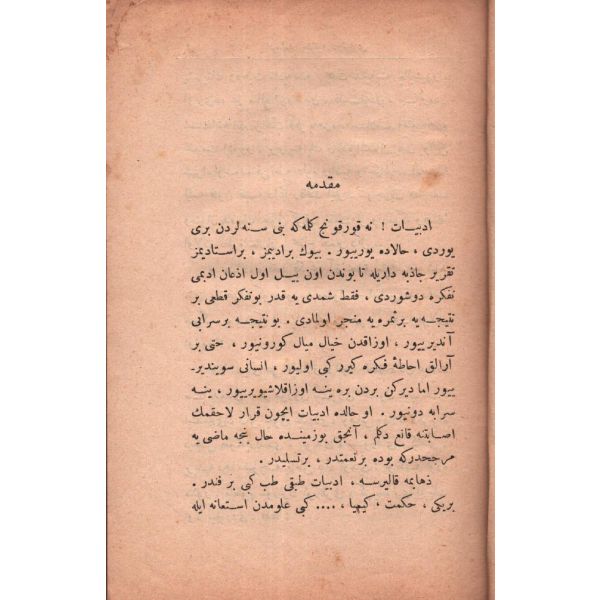 مقدمه
ادبیات ! نه قورقونج كلمه كه بنی سنه لردن بری
یوردی ، حالاده یوریبور . بیوك برادیبمز ، براستادیمز
تقریر جاذبه داریله تا بوندن اون ییل اول اذعان ادبمی
تفكره دوشوردی ، فقط شمدی یه قدر بوتفكر قطعی بر
نتیجه یه برثمره یه منجر اولمادی . بو نتیجه برسرابی
آندیرییور ، اوزاقدن خیال میال كورونیور ، حتی بر
آرالق احاطهٔ فكره كیرر كبی اولیور ، انسانی سویندیر-
ییور اما دیركن بردن بره ینه اوزاقلاشیویرییور ، ینه
سرابه دونیور . او حالده ادبیات ایچون قرار لاحقمك
اصابتنه قانع دكلم ، آنجق بوزمینده حال بنجه ماضی یه
مرجحدركه بوده برنعمتدر ، برتسلیدر .
ذهابمه قالیرسه ، ادبیات طبقی طب كبی بر فندر .
بریكی ، حكمت ، كیمیا ، .... كبی علومدن استعانه ایله